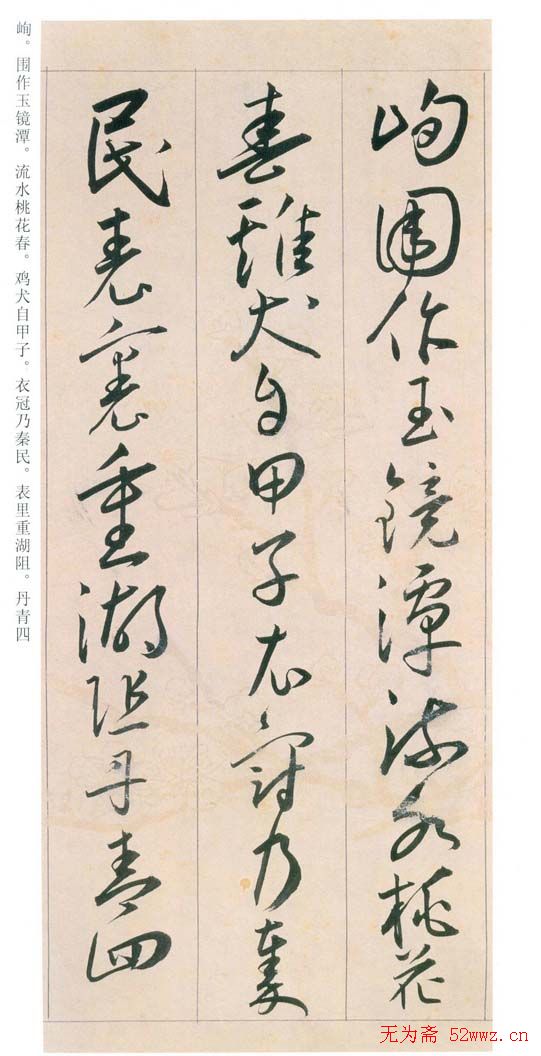 峋圍作玉鏡潭流水桃花
春雞犬自甲子衣冠乃秦
民表裏重湖阻丹青四
峋。围作玉镜潭。流水桃花春。鸡犬自甲子。衣冠乃秦民。表里重湖阻。丹青四
无为斋 52wwz.cn